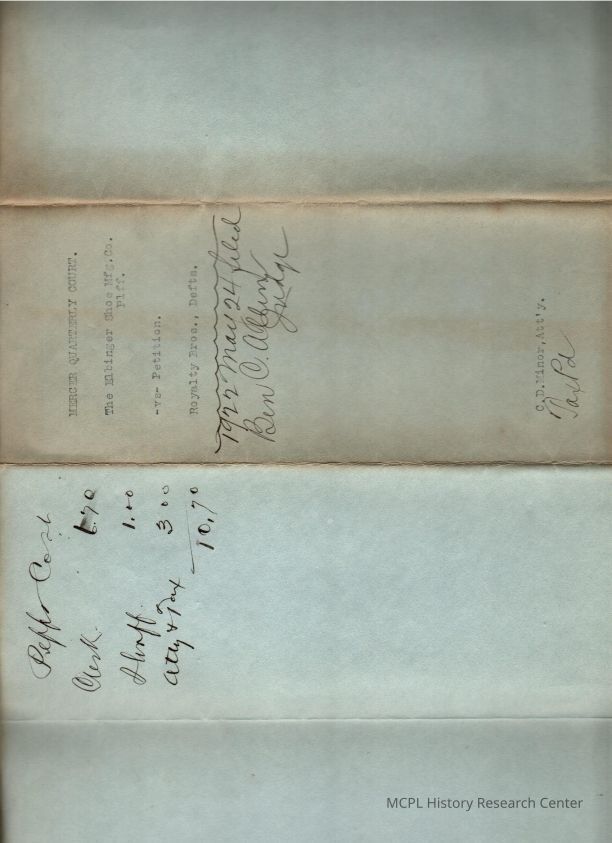 MERCER QUARTERLY COURT.
The Elbinger Shoe Mfg.Co.
Plff.
-vs- Petition.
Royalty Bros., Defts.
1922 May 24 filed
Ben C. Allin
Judge
C.D.Minor,Att'y.
Tax Pd
Plffs Cost
Clerk. 6.70
Sheriff. 1.00
Atty & Tax 3 00
10.70
MCPL History Research Center